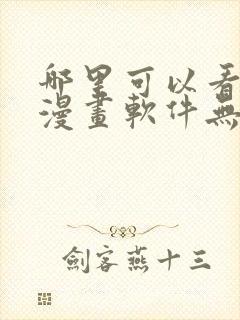 哪里可以看
漫畫軟件無
劍客燕十三